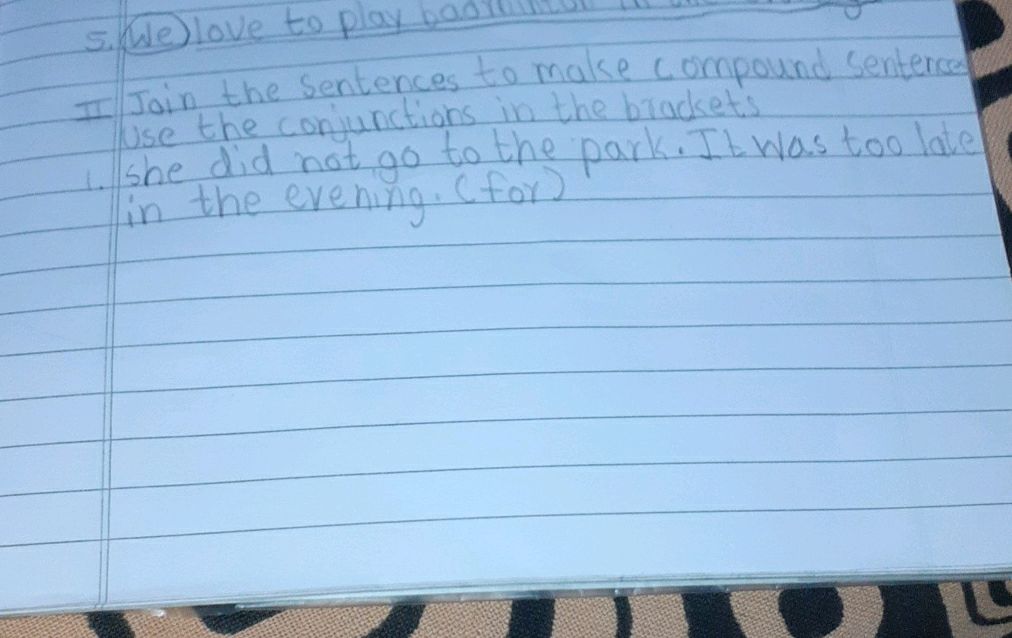 5. We love to play badminton in the
II Join the sentences to make compound sentences
Use the conjunctions in the brackets
1. she did not go to the park. It was too late
in the evening. (for)